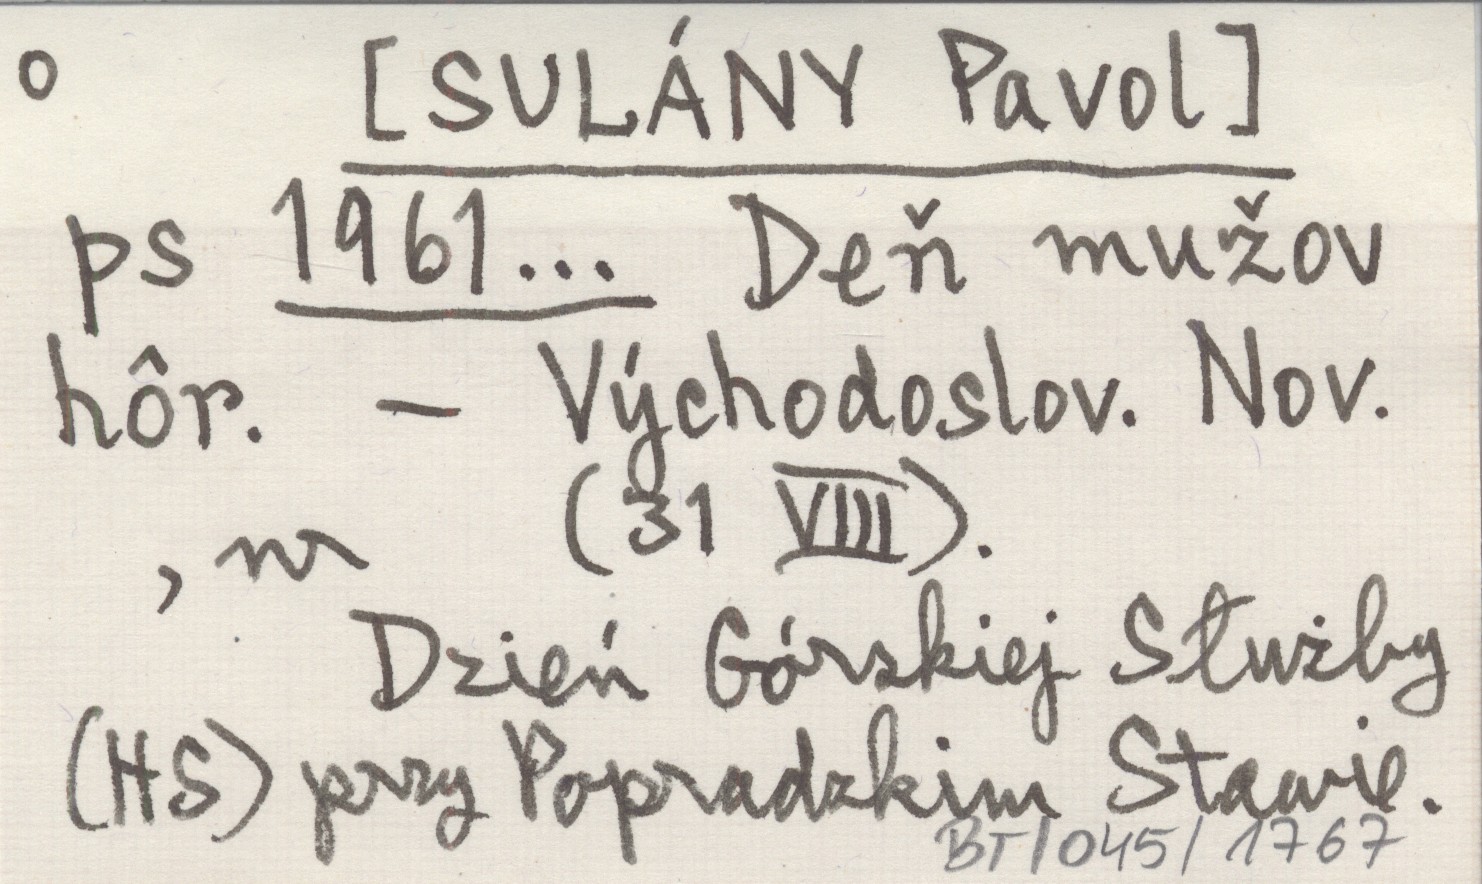 o [SULÁNY Pavol]
ps 1961... Deň mužov
hôr. – Východoslov. Nov.
(31 VIII).
, nr
Dzień Górskiej Służby
(HS) przy Popradzkim Stawie.
BT/045/1767